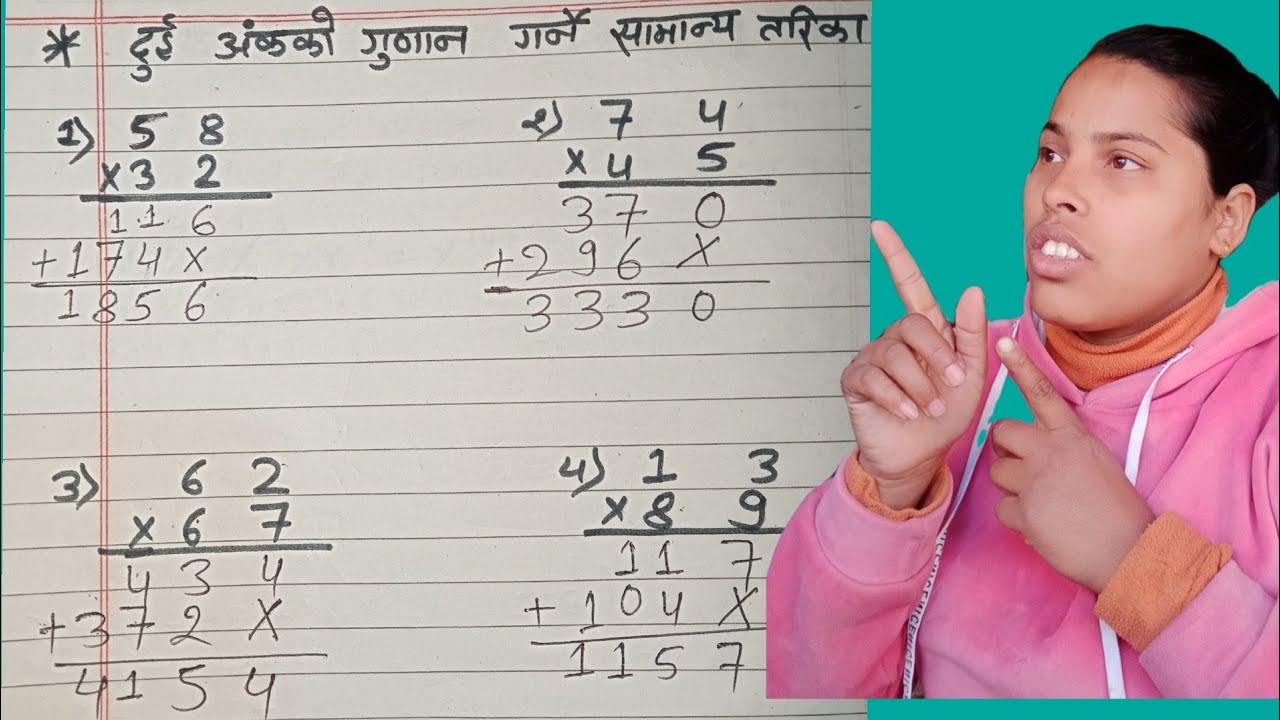 * दुई अंकको गुणान गर्ने सामान्य तरिका
1) 5 8
x 3 2
1 1 6
+ 1 7 4 x
1 8 5 6
२) 7 4
x 4 5
3 7 0
+ 2 9 6 x
3 3 3 0
3) 6 2
x 6 7
4 3 4
+ 3 7 2 x
4 1 5 4
4) 1 3
x 8 9
1 1 7
+ 1 0 4 x
1 1 5 7